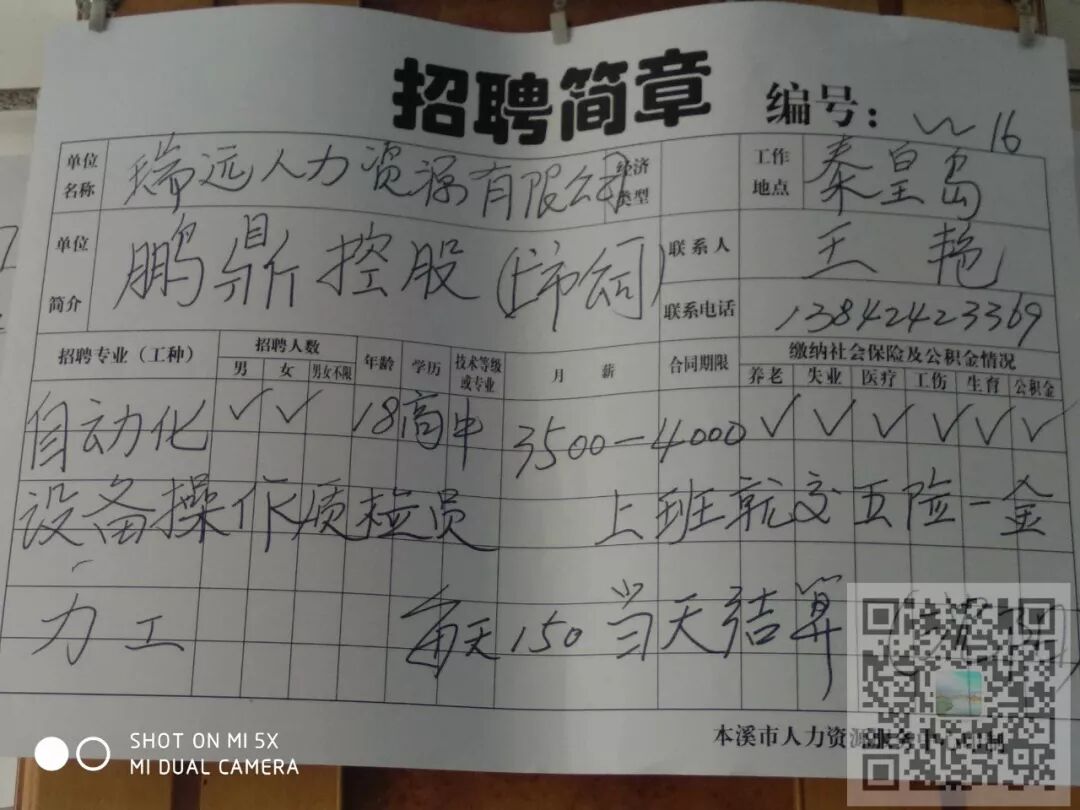 招聘简章 编号： 16
单位名称 瑞远人力资源有限公司 经济类型 工作地点 秦皇岛
单位简介 鹏鼎控股(上市公司) 联系人 王艳
联系电话 13842423369
招聘专业（工种） 招聘人数 年龄 学历 技术等级或专业 月薪 合同期限 缴纳社会保险及公积金情况
男 女 男女不限 养老 失业 医疗 工伤 生育 公积金
自动化 ✓ ✓ 18 高中 3500-4000 ✓ ✓ ✓ ✓ ✓ ✓
设备操作质检员 上班就交五险一金
力工 每天150当天结算
本溪市人力资源服务中心印制
SHOT ON MI 5X
MI DUAL CAMERA